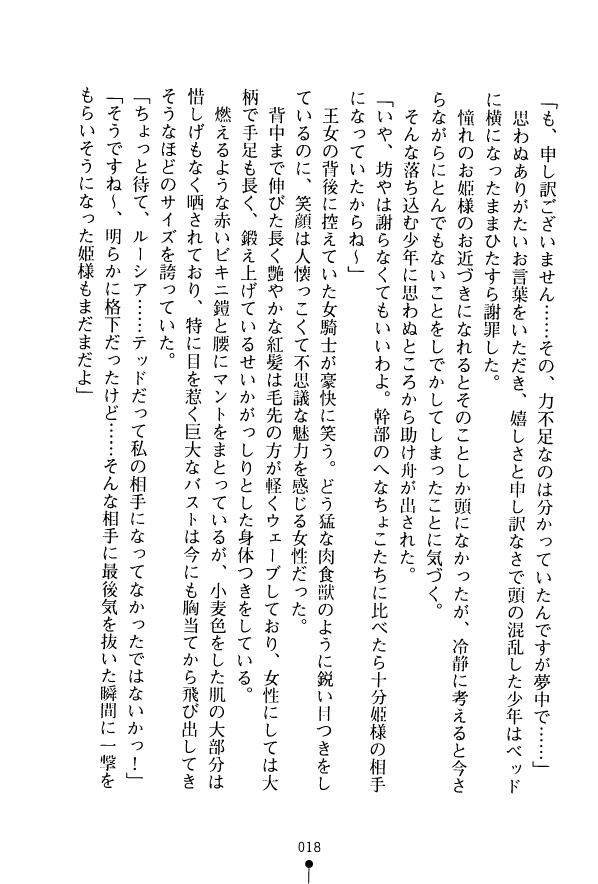 「も、申し訳ございません……その、力不足なのは分かっていたんですが夢中で……」
思わぬありがたいお言葉をいただき、嬉しさと申し訳なさで頭の混乱した少年はベッド
に横になったままひたすら謝罪した。
憧れのお姫様のお近づきになれるとそのことしか頭になかったが、冷静に考えると今さ
らながらにとんでもないことをしでかしてしまったことに気づく。
そんな落ち込む少年に思わぬところから助け舟が出された。
「いや、坊やは謝らなくてもいいわよ。幹部のへなちょこたちに比べたら十分姫様の相手
になっていたからね～」
王女の背後に控えていた女騎士が豪快に笑う。どう猛な肉食獣のように鋭い目つきをし
ているのに、笑顔は人懐っこくて不思議な魅力を感じる女性だった。
背中まで伸びた長く艶やかな紅髪は毛先の方が軽くウェーブしており、女性にしては大
柄で手足も長く、鍛え上げているせいかがっしりとした身体つきをしている。
燃えるような赤いビキニ鎧と腰にマントをまとっているが、小麦色をした肌の大部分は
惜しげもなく晒されており、特に目を惹く巨大なバストは今にも胸当てから飛び出してき
そうなほどのサイズを誇っていた。
「ちょっと待て、ルーシア……テッドだって私の相手になってなかったではないかっ！」
「そうですね～、明らかに格下だったけど……そんな相手に最後気を抜いた瞬間に一撃を
もらいそうになった姫様もまだまだよ」
018